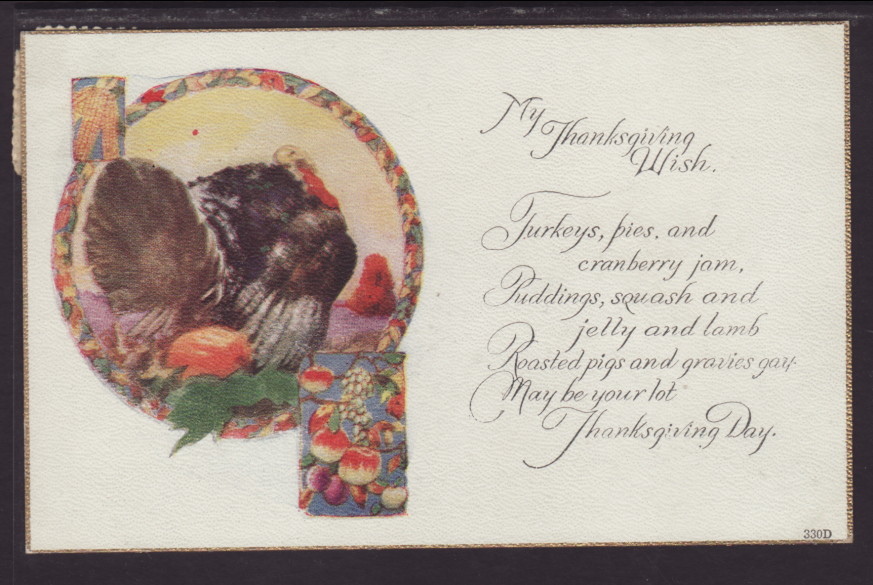 My
Thanksgiving
Wish.
Turkeys, pies, and
cranberry jam,
Puddings, squash and
jelly and lamb
Roasted pigs and gravies gay
May be your lot
Thanksgiving Day.
330D